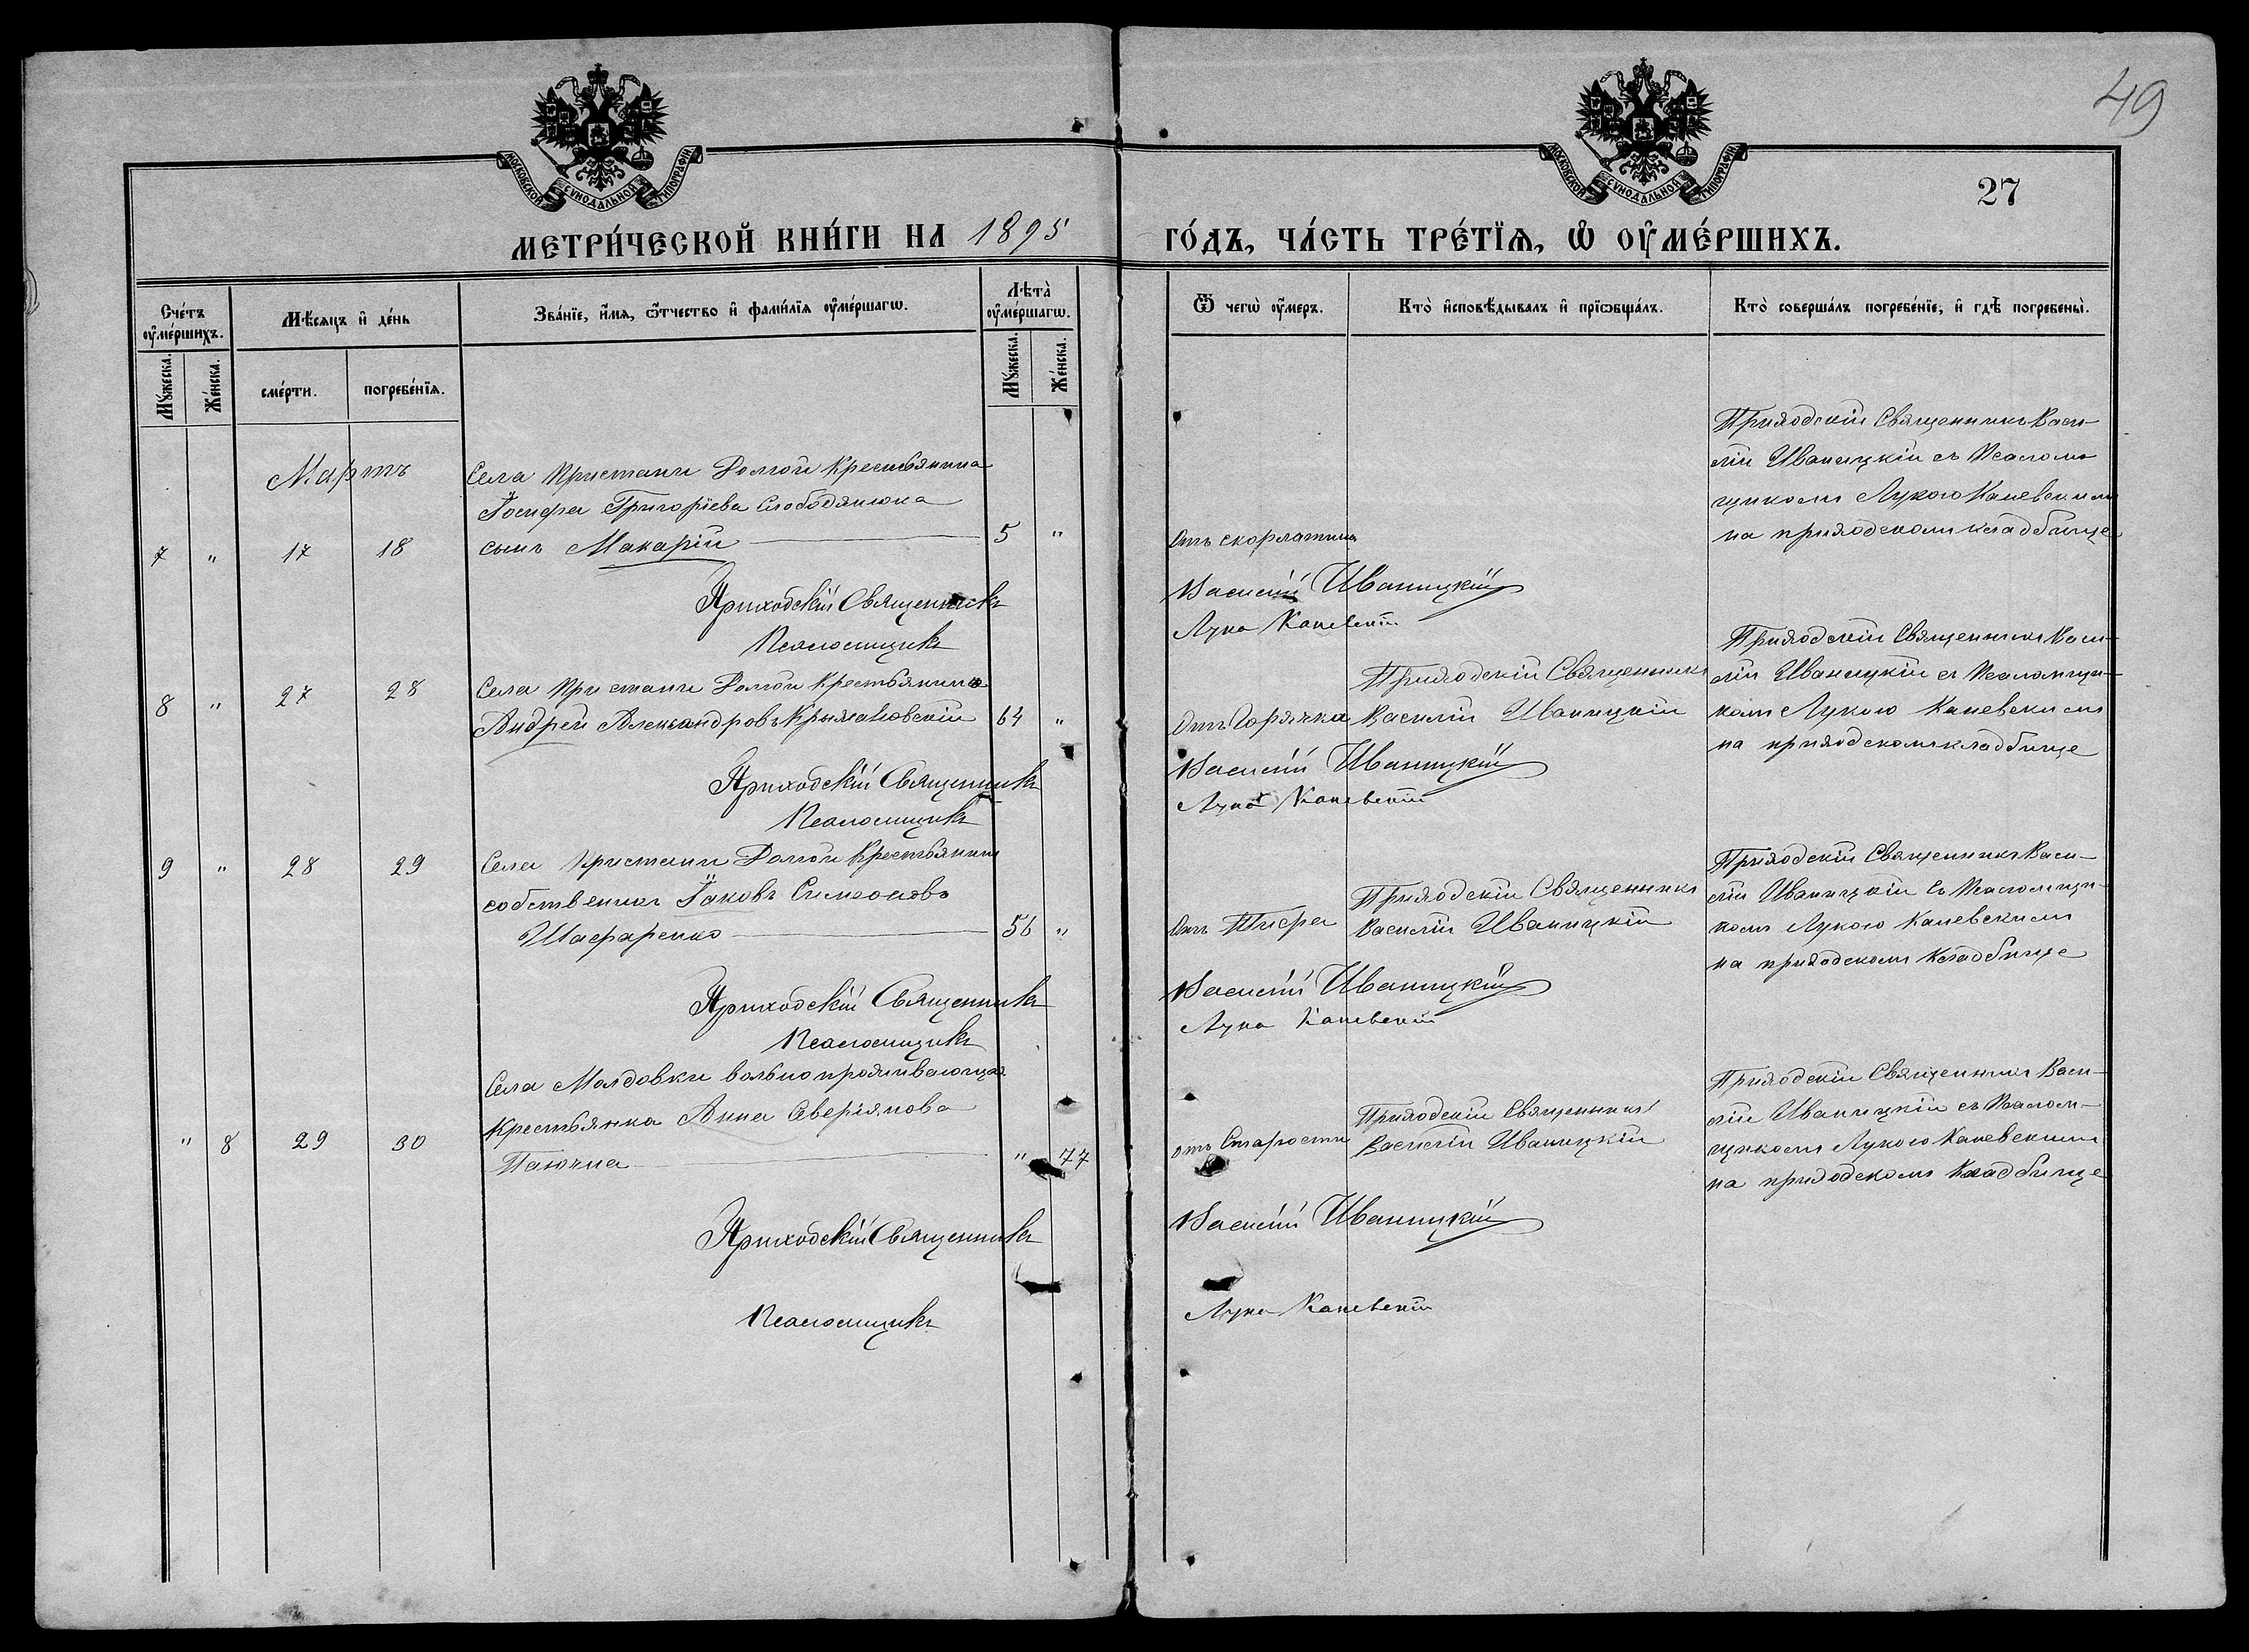 49
МОСКОВСКОЙ СУНОДАЛЬНОЙ ТИПОГРАФІИ
МОСКОВСКОЙ СУНОДАЛЬНОЙ ТИПОГРАФІИ
27
МЕТРИ́ЧЕСКОЙ КНИ́ГИ НА 1895 ГО́ДЪ, ЧА́СТЬ ТРЕ́ТЇѦ, Ѡ҆ ОУ҆МЕ́РШИХЪ.
Сче́тъ оу҆ме́ршихъ.
Мꙋ́жеска.
Же́нска.
Мѣ́сяцъ и҆ де́нь
сме́рти.
погребе́нїѧ.
Зва́нїе, и҆́мѧ, ѻ҆́тчество и҆ фами́лїѧ оу҆ме́ршагѡ.
Лѣта̀ оу҆ме́ршагѡ.
Мꙋ́жеска.
Же́нска.
Ѿ чегѡ̀ оу҆́меръ.
Кто̀ и҆сповѣ́дывалъ и҆ прїѡбща́лъ.
Кто̀ соверша́лъ погребе́нїе, и҆ гдѣ̀ погребены̀.
Мартъ
Села Пристани Долгой Крестьянина
Іосифа Григоріева Слободянюка
7 " 17 18 сынъ Макарій 5 "
Отъ скорлатины
Приходскій Священникъ Васи-
лій Иваницкій съ Псалом-
щикомъ Лукою Каневскимъ
на приходскомъ кладбище
Приходскій Священникъ Василій Иваницкій
Псаломщикъ Лука Каневскій
8 " 27 28 Села Пристани Долгой Крестьянинъ
Андрей Александровъ Крыжановскій 64 "
Отъ Горячки
Приходскій Священникъ
Василій Иваницкій
Приходскій Священникъ Васи-
лій Иваницкій съ Псаломщи-
комъ Лукою Каневскимъ
на приходскомъ кладбище
Приходскій Священникъ Василій Иваницкій
Псаломщикъ Лука Каневскій
9 " 28 29 Села Пристани Долгой Крестьянинъ
собственикъ Іаковъ Симеоновъ
Шафаренко 56 "
Отъ Тифа
Приходскій Священникъ
Василій Иваницкій
Приходскій Священникъ Васи-
лій Иваницкій съ Псаломщи-
комъ Лукою Каневскимъ
на приходскомъ Кладбище
Приходскій Священникъ Василій Иваницкій
Псаломщикъ Лука Каневскій
Села Молдовки вольно проживающая
Крестьянка Анна Аверіянова
" 8 29 30 " 77
отъ Старости
Приходскій Священникъ
Василій Иваницкій
Приходскій Священникъ Васи-
лій Иваницкій съ Псалом-
щикомъ Лукою Каневскимъ
на приходскомъ Кладбище
Приходскій Священникъ Василій Иваницкій
Псаломщикъ Лука Каневскій